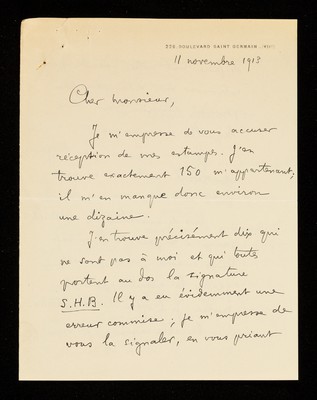 220, BOULEVARD SAINT GERMAIN (VIIᵉ)
11 novembre 1913
Cher Monsieur,
Je m'empresse de vous accuser
réception de mes estampes. J'en
trouve exactement 150 m'appartenant;
il m'en manque donc environ
une dizaine.
J'en trouve précisément dix qui
ne sont pas à moi et qui toutes
portent au dos la signature
S.H.B. Il y a eu évidemment une
erreur commise; je m'empresse de
vous la signaler, en vous priant